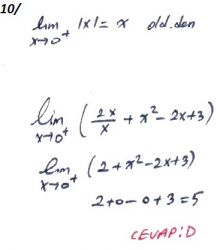 10/
lim x→0⁺ |x| = x old.dan
lim x→0⁺ ( 2x/x + x² - 2x+3)
lim x→0⁺ (2+x²-2x+3)
2+0-0+3=5
CEVAP:D